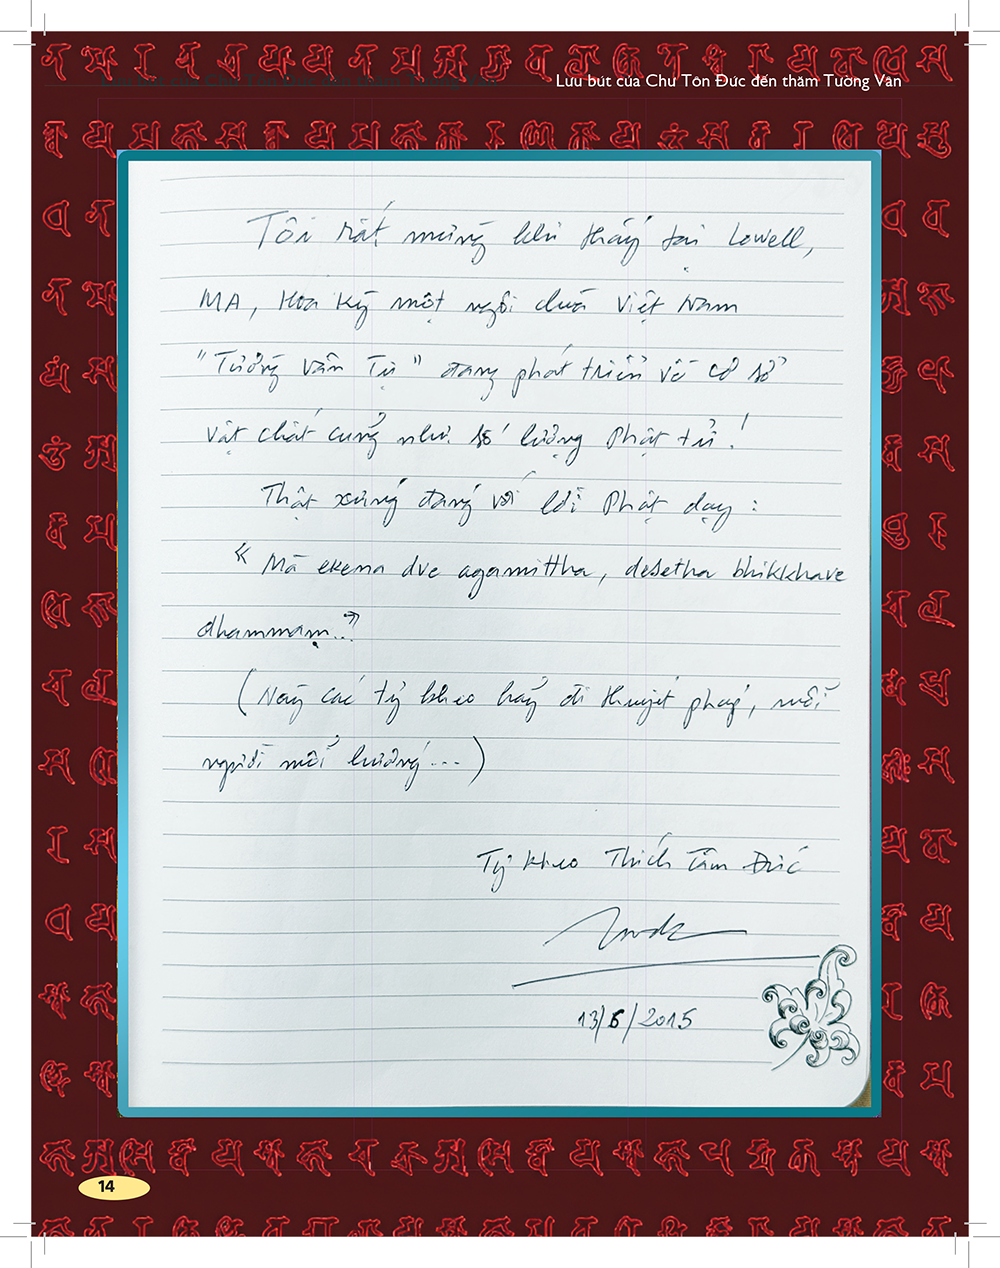 Lưu bút của Chư Tôn Đức đến thăm Tường Vân
Tôi rất mừng khi thấy tại Lowell,
MA, Hoa Kỳ một ngôi chùa Việt Nam
"Tường Vân Tự" đang phát triển về cơ sở
vật chất cũng như số lượng Phật tử!
Thật xứng đáng với lời Phật dạy:
« Mā ekena dve agamittha, desetha bhikkhave
dhammaṃ..."
(Này các tỷ kheo hãy đi thuyết pháp, mỗi
người mỗi hướng...)
Tỷ kheo Thích Tâm Đức
13/6/2015
14